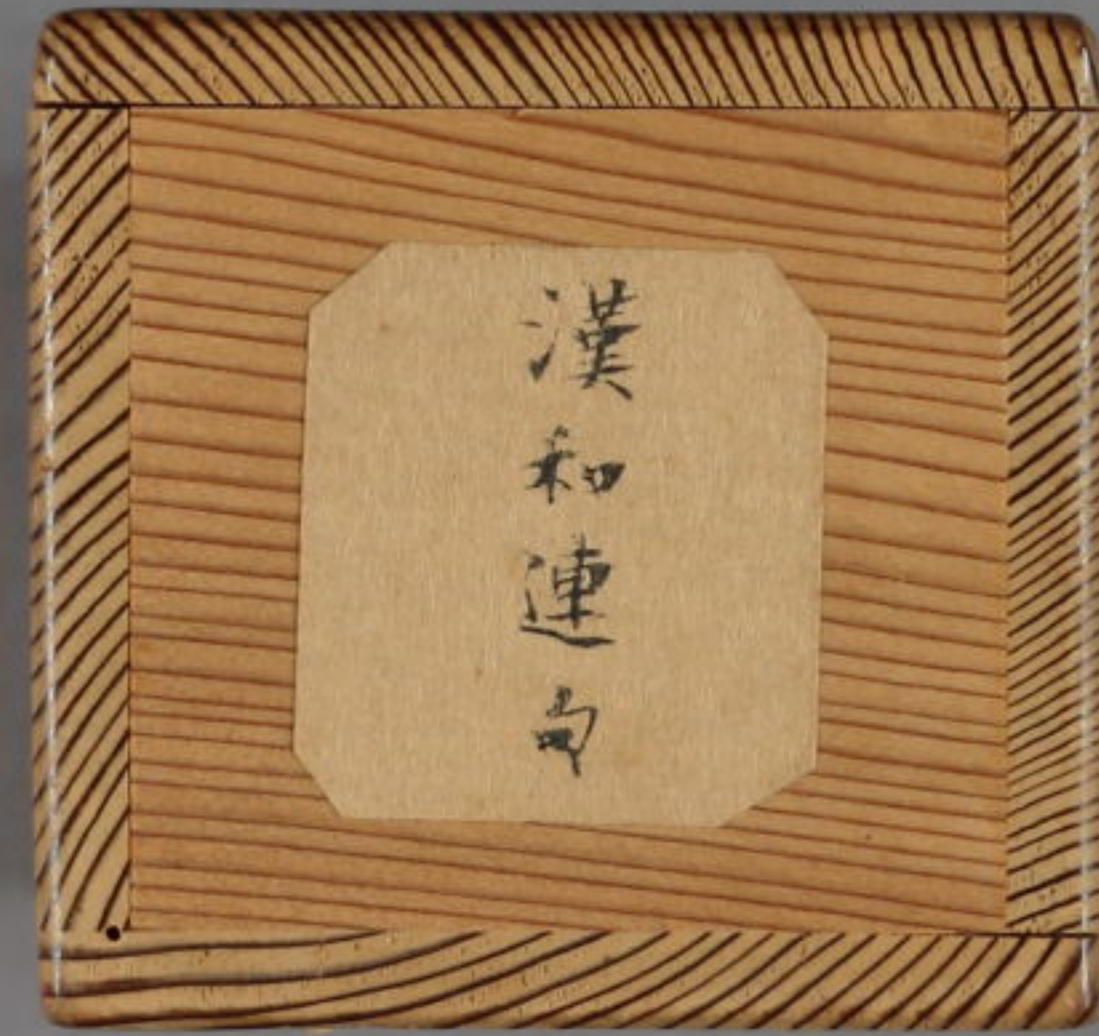 漢和連句